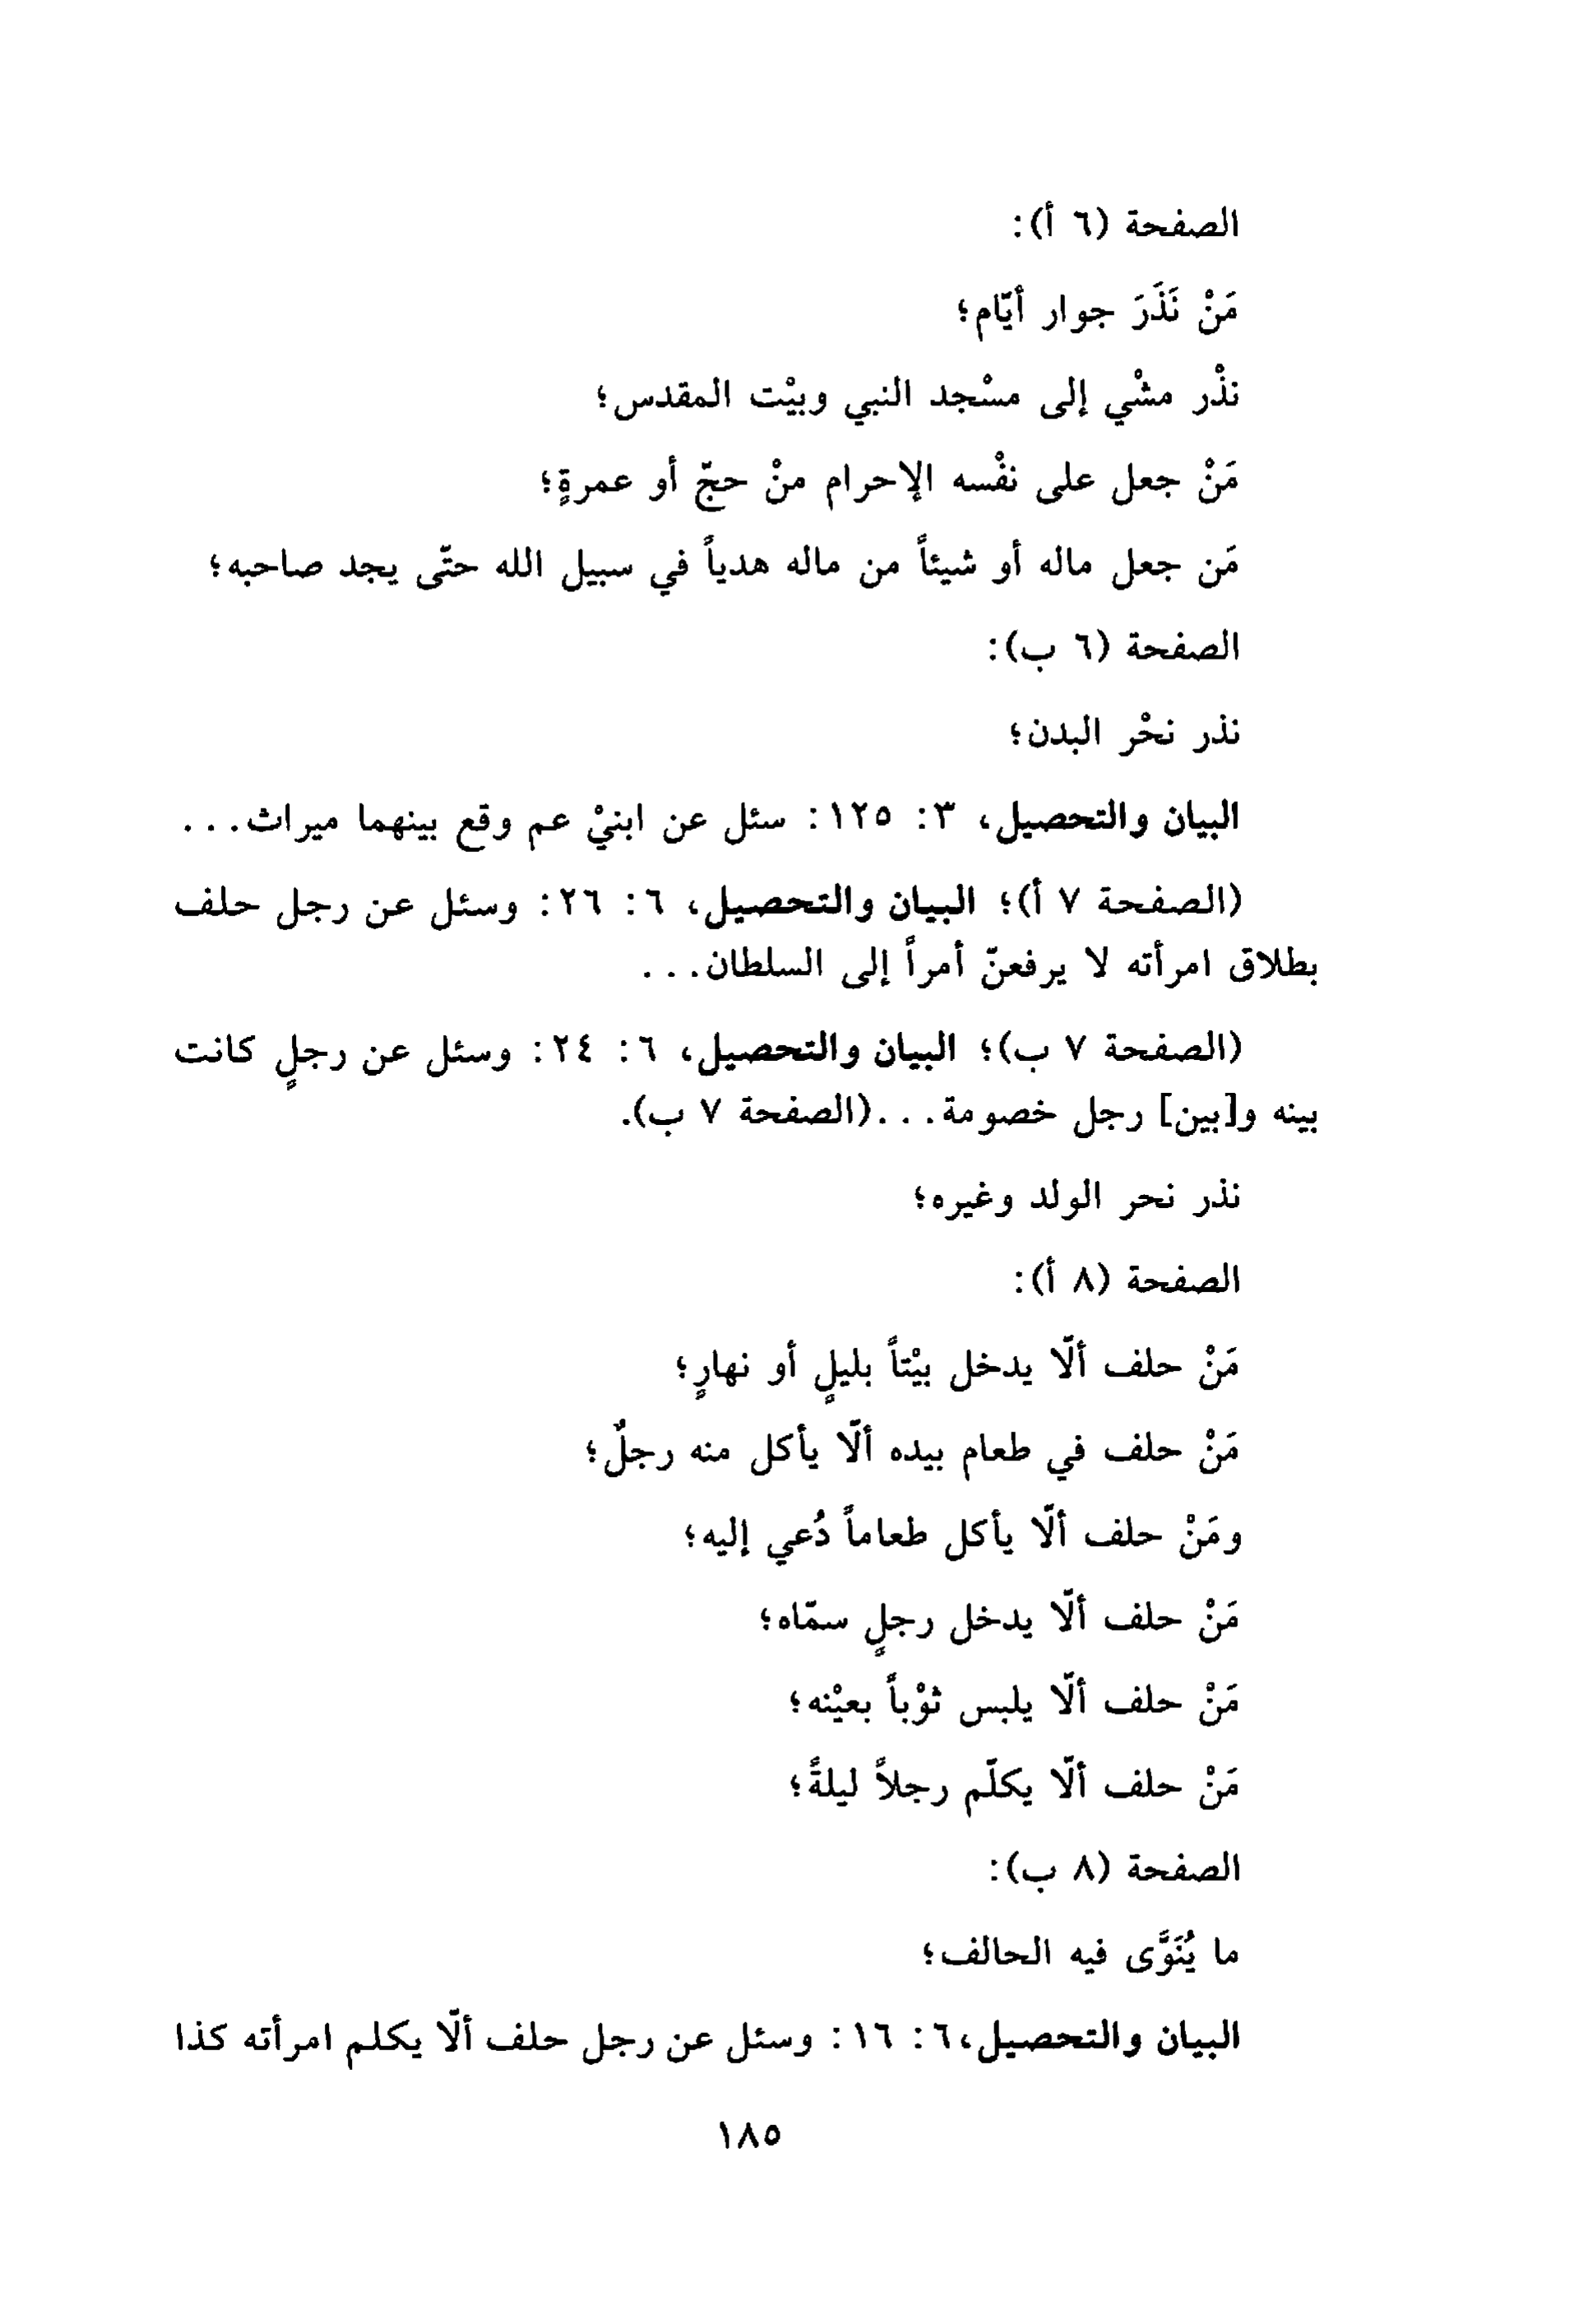 الصفحة (٦ أ):
مَنْ نَذَرَ جوار أيّام؛
نذْر مشْي إلى مسْجد النبي وبيْت المقدس؛
مَنْ جعل على نفْسه الإحرام منْ حجّ أو عمرةٍ؛
مَن جعل ماله أو شيئاً من ماله هدياً في سبيل الله حتّى يجد صاحبه؛
الصفحة (٦ ب):
نذر نحْر البدن؛
البيان والتحصيل، ٣: ١٢٥: سئل عن ابنيْ عم وقع بينهما ميراث...
(الصفحة ٧ أ)؛ البيان والتحصيل، ٦: ٢٦: وسئل عن رجل حلف
بطلاق امرأته لا يرفعنّ أمراً إلى السلطان...
(الصفحة ٧ ب)؛ البيان والتحصيل، ٦: ٢٤: وسئل عن رجلٍ كانت
بينه و[بين] رجل خصومة...(الصفحة ٧ ب).
نذر نحر الولد وغيره؛
الصفحة (٨ أ):
مَنْ حلف ألّا يدخل بيْتاً بليلٍ أو نهارٍ؛
مَنْ حلف في طعام بيده ألّا يأكل منه رجلٌ؛
ومَنْ حلف ألّا يأكل طعاماً دُعي إليه؛
مَنْ حلف ألّا يدخل رجلٍ سمّاه؛
مَنْ حلف ألّا يلبس ثوْباً بعيْنه؛
مَنْ حلف ألّا يكلّم رجلاً ليلةً؛
الصفحة (٨ ب):
ما يُنَوَّى فيه الحالف؛
البيان والتحصيل،٦: ١٦: وسئل عن رجل حلف ألّا يكلم امرأته كذا
١٨٥